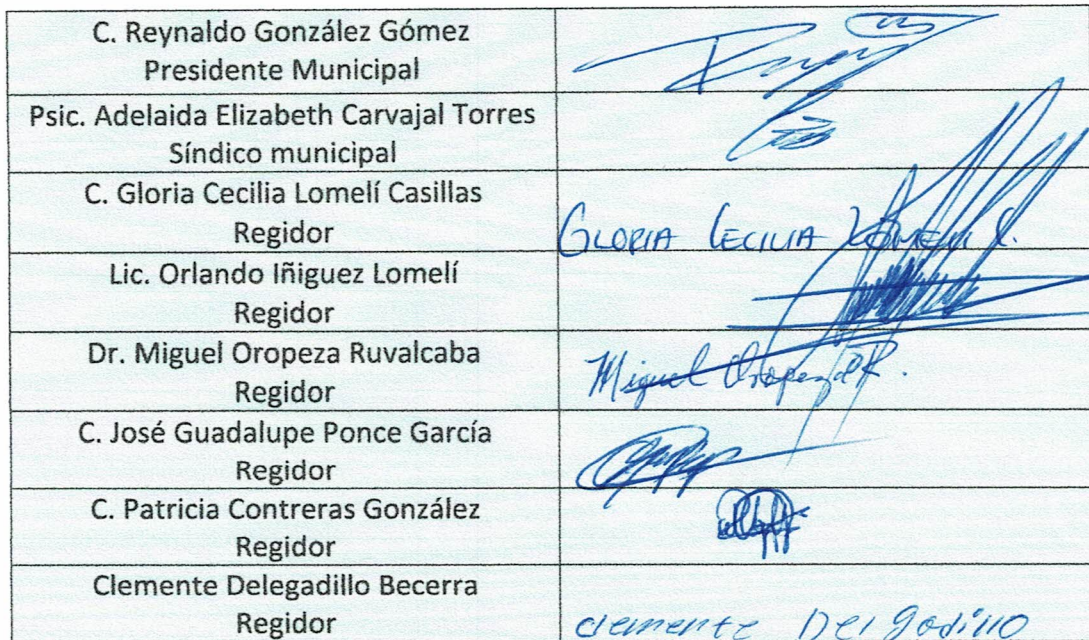 C. Reynaldo González Gómez
Presidente Municipal
Psic. Adelaida Elizabeth Carvajal Torres
Síndico municipal
C. Gloria Cecilia Lomelí Casillas
Regidor
GLORIA CECILIA LOMELI C.
Lic. Orlando Iñiguez Lomelí
Regidor
Dr. Miguel Oropeza Ruvalcaba
Regidor
Miguel Oropeza R.
C. José Guadalupe Ponce García
Regidor
C. Patricia Contreras González
Regidor
Clemente Delegadillo Becerra
Regidor
clemente Delgadillo